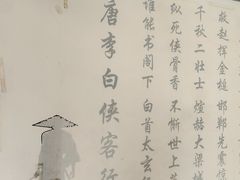 救赵挥金槌 邯郸先震
千秋二壮士 煊赫大梁城
纵死侠骨香 不惭世上
谁能书阁下 白首太玄
唐李白侠客行